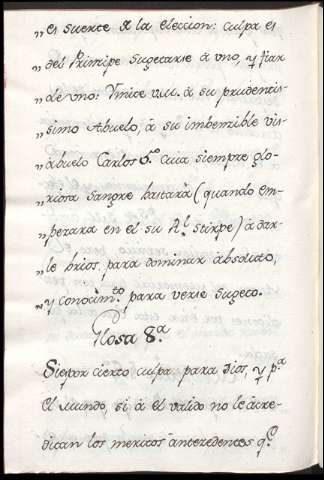 „ es suerte â la eleccion: culpa es
„ del Principe sugetarse â vno, y fiar
„ de vno: Ymite v.m. â su prudentis-
„ simo Abuelo, â su imbenzible vis-
„ abuelo Carlos 5.º cuia siempre glo-
„ riosa sangre bastarà (quando em-
„ perara en el su R.l stirpe) â dar-
„ le brios, para dominar âbsoluto,
„ y conocim.to para verse sugeto.
Glosa 8.ª
Si es por cierto culpa, para dios, y p.ª
el mundo, si â el valido no le âcre-
ditan los meritos ântecedentes q.e